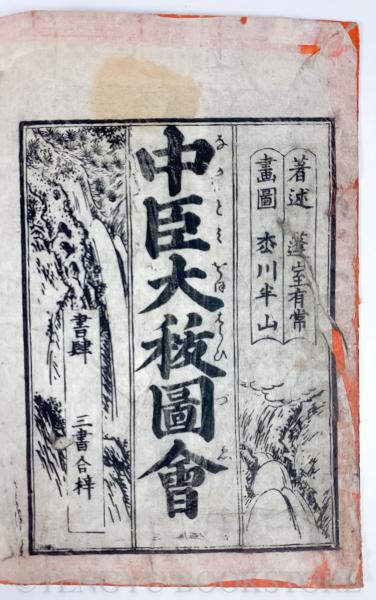 著述 蓬室有常
畫圖 枩川半山
中臣大祓圖會
なかとみおほはらひづゑ
書肆 三書合梓
©TENGYU BOOKSTORE